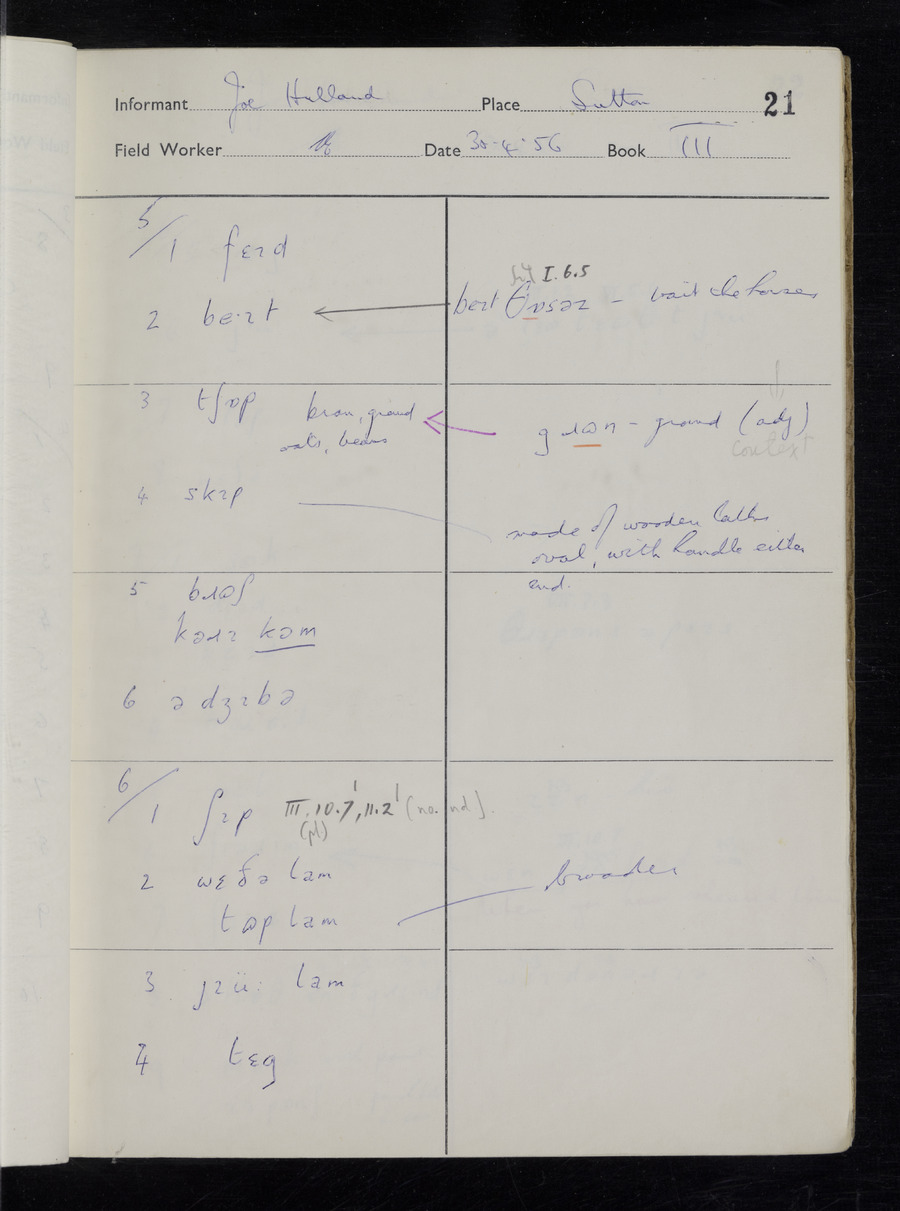 Informant Joe Holland Place Sutton 21
Field Worker Date 30·4·56 Book III
5/1 fɛɪd
2 be·ɪt
I.6.5
beɪt ɒsəz – bait the horses
3 tʃɒp bran, ground
oats, beans
gɹɷn – ground (adj)
context
4 skɪp
made of wooden laths
oval, with handle either
end.
5 bɹɷʃ
kəɹɪ kəm
6 ə dʒɪbə
6/1 ʃɪp III.10.7', 11.2' (no. ind.).
(pl)
2 wɛðə lam
tɷp lam
broader
3 jɪü: lam
4 tɛg